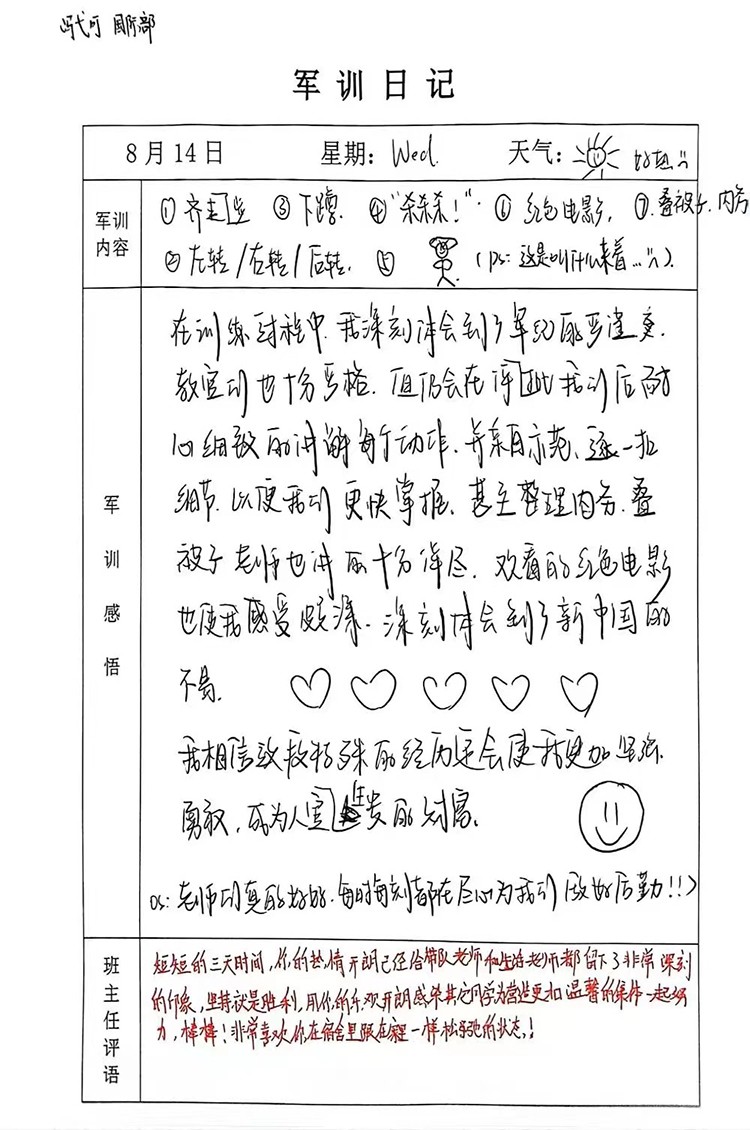 国际部
军训日记
8月14日 星期：Wed. 天气： 好热
军训内容
① 齐步走 ③ 下蹲. ④ "杀杀杀！". ⑥ 红色电影. ⑦.叠被子.内务
② 左转/右转/后转. ⑤ (ps: 这是叫什么来着...).
军训感悟
在训练过程中.我深刻体会到了军纪的严谨.
教官们也十分严格.但仍会在 我们后耐
心细致的讲解每个动作.并亲自示范、逐一扣
细节.以便我们更快掌握.甚至整理内务.叠
被子老师也讲的十分详尽.观看的红色电影
也使我感受颇深.深刻体会到了新中国的
不易.
我相信这段特殊的经历定会使我更加坚强.
勇敢，成为人生宝贵的财富.
os: 老师们真的好好.每时每刻都在尽心为我们做好后勤!!)
班主任评语
短短的三天时间，你的热情开朗已经给带队老师和生活老师都留下了非常深刻
的印象，坚持就是胜利，用你的乐观开朗感染其他同学为营造更加温馨的集体一起努
力，棒棒！非常喜欢你在宿舍里跟在家一样松弛的状态！